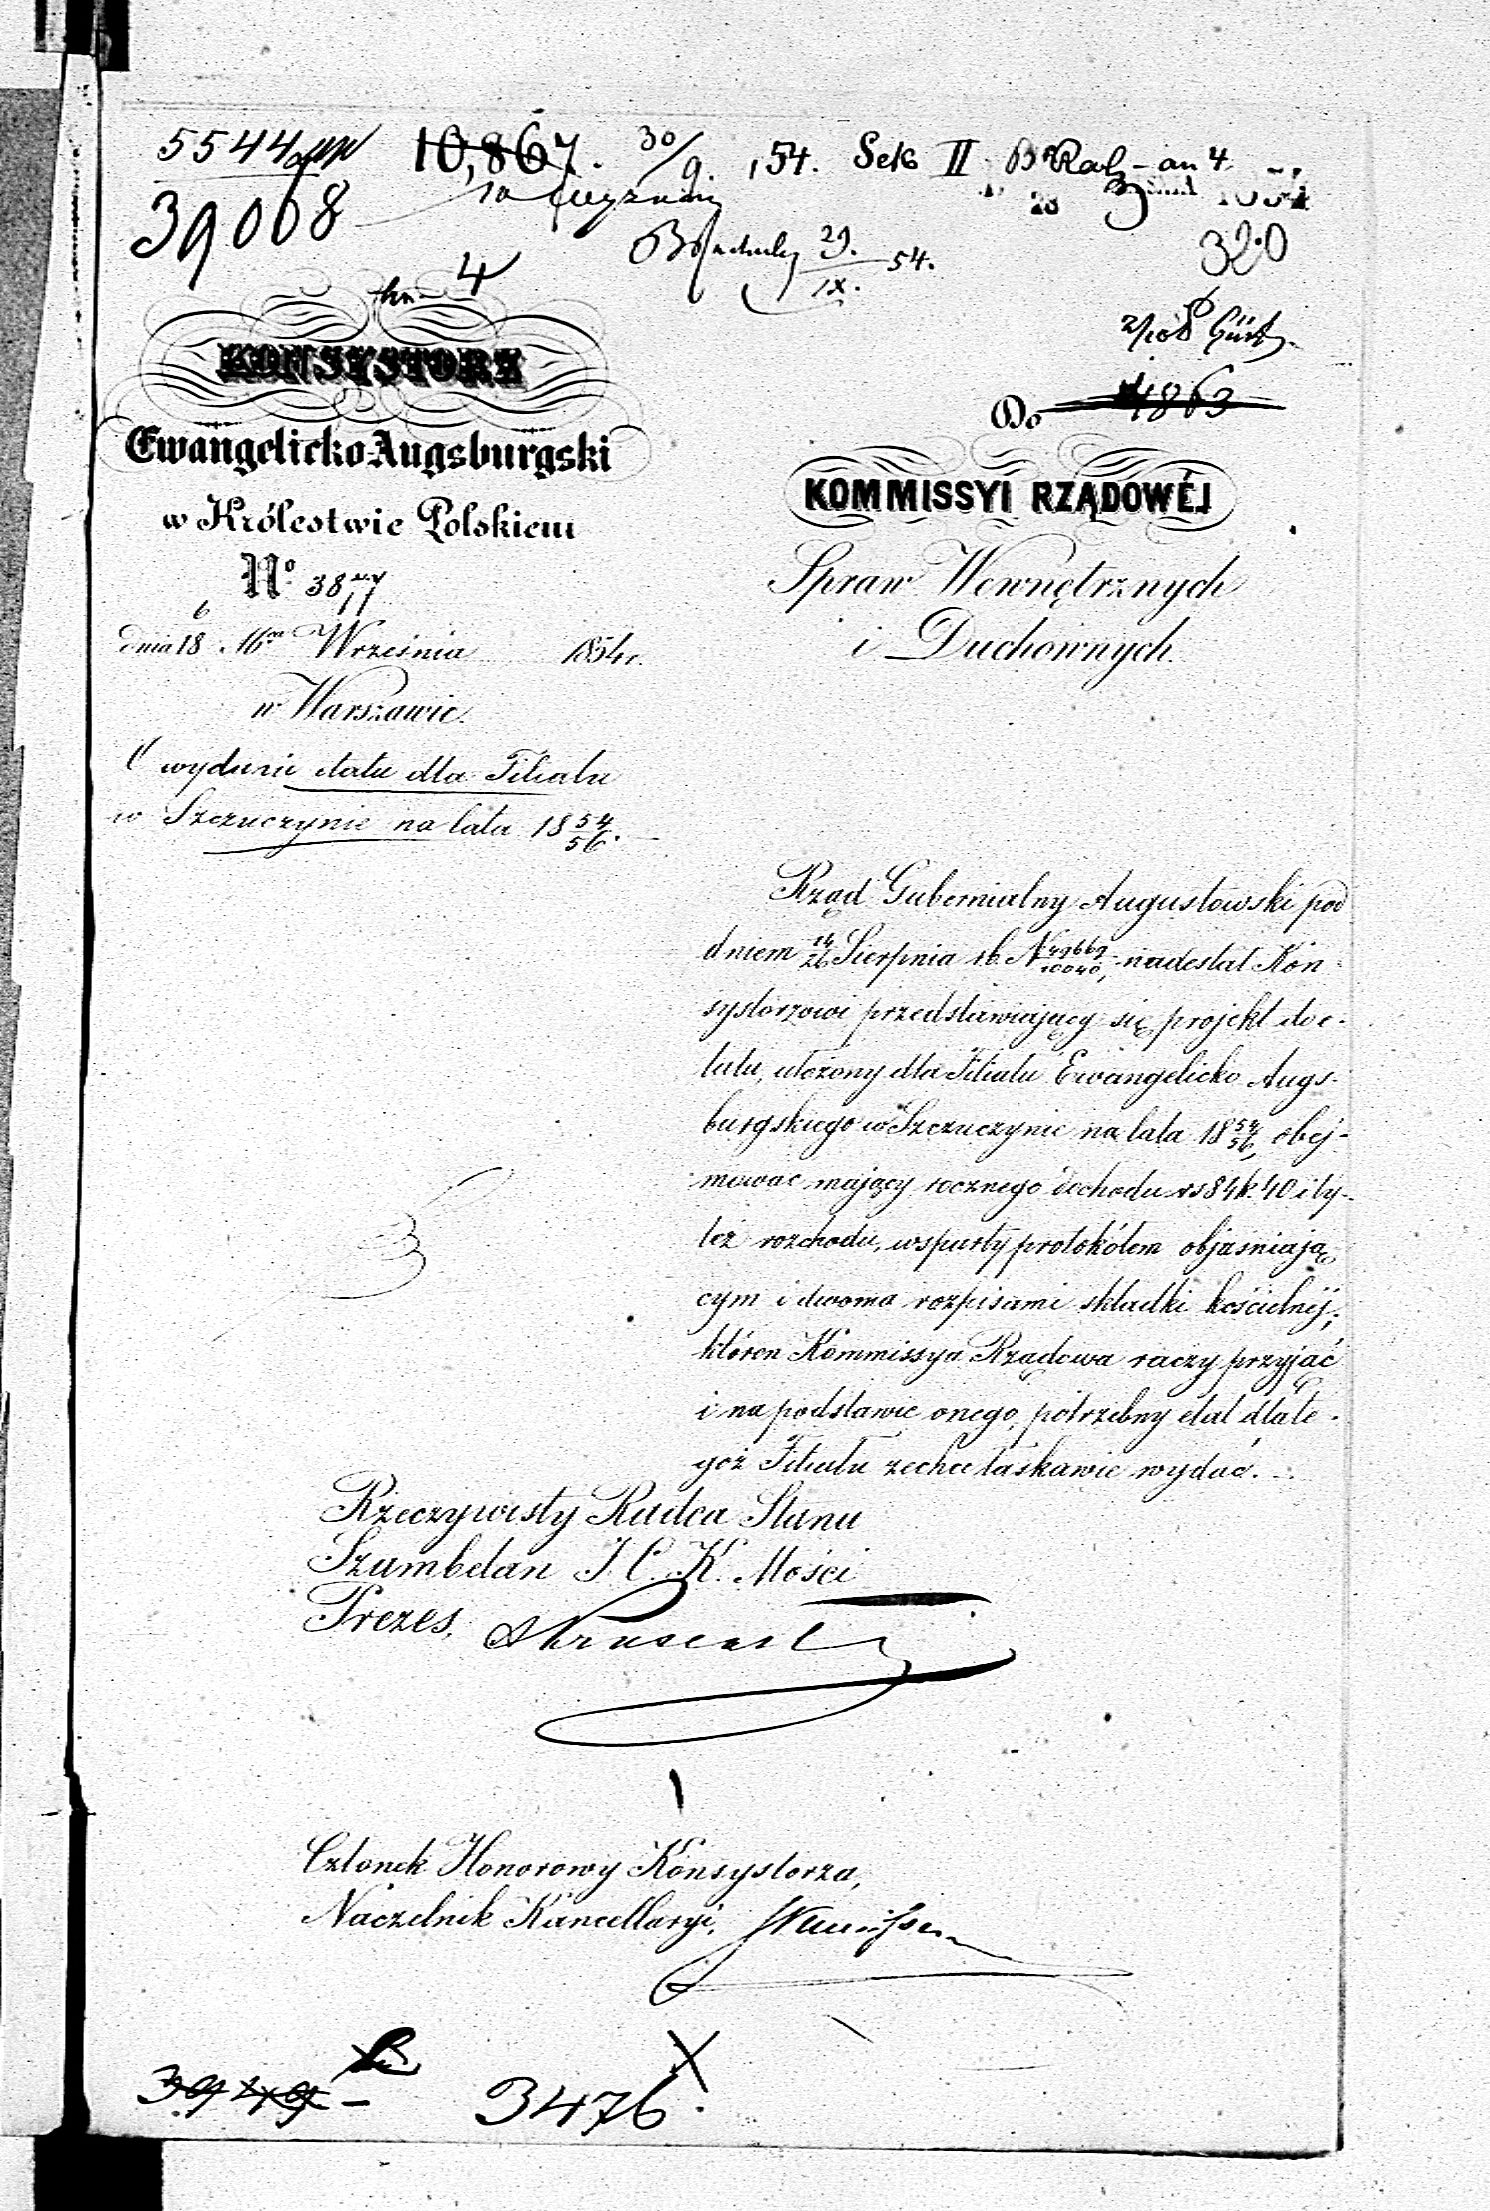 5544
10,867. 30/9. 54. Sek II
39068
29. 54.
IX.
320
4
KONSYSTORZ
Do 4863
Ewangelicko-Augsburgski
KOMMISSYI RZĄDOWÉJ
w Królestwie Polskiem
Spraw Wewnętrznych
No 38
i Duchownych.
6
dnia 18 Września 1854 r.
w Warszawie.
O wydanie etatu dla Filiału
w Szczuczynie na lata 18 54/56.
Rząd Gubernialny Augustowski pod
dniem 14/26 Sierpnia rb. N 49669/10040, nadesłał Kon-
systorzowi przedstawiający się projekt do e-
tatu, ułożony dla Filiału Ewangelicko Augs-
burgskiego w Szczuczynie na lata 18 54/56, obej-
mować mający rocznego dochodu rs 84 k. 40 i ty-
leż rozchodu, wsparty protokółem objaśniają-
cym i dwoma rozpisami składki kościelnéj,
któren Kommissya Rządowa raczy przyjąć
i na podstawie onego, potrzebny etat dla te-
goż Filiału zechce łaskawie wydać.
Rzeczywisty Radca Stanu
Szambelan J. C. K. Mości
Prezes,
Członek Honorowy Konsystorza,
Naczelnik Kancellaryi,
3476